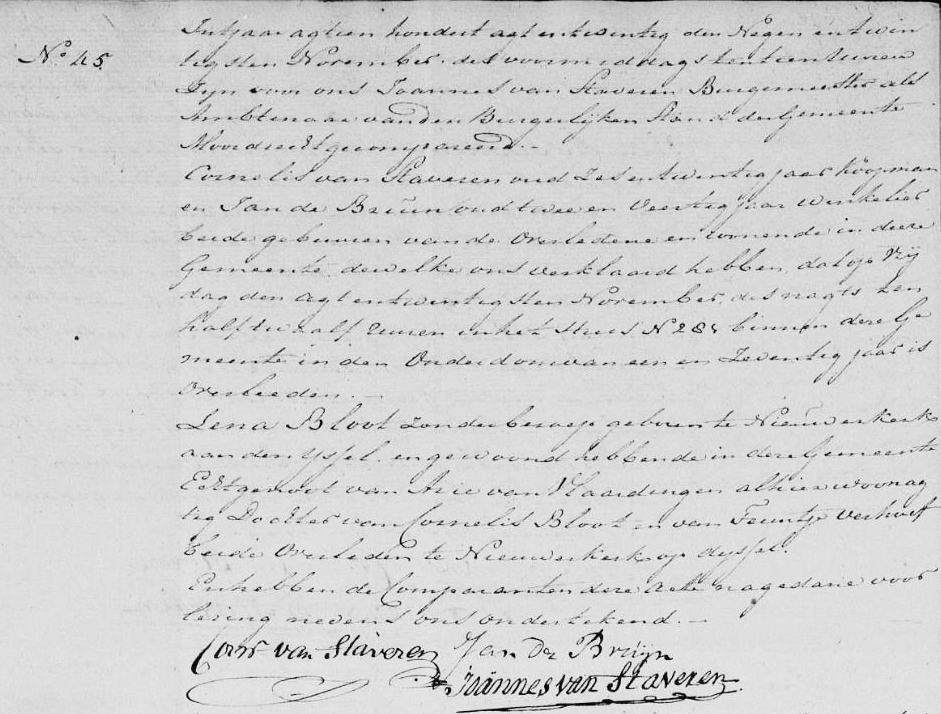 In t jaar agtien hondert agt en twintig den Negen en twin
No 45
tigsten November des voormiddags ten tien uuren
Zyn voor ons Joannes van Staveren Burgemeester als
Ambtenaar van den Burgerlyken Stand der Gemeente
Moordrecht gecompareerd.-
Cornelis van Staveren oud Zes en twintig jaar koopman
en Jan de Bruin oud twee en Veertig jaar winkelier
beide gebuuren van de Overledene en wonende in deese
Gemeente, dewelke ons verklaard hebben, dat op Vrij
dag den agt en twintigsten November, des nagts ten
half twaalf uuren in het Huis N 288 binnen deze Ge
meente in den Ouderdom van een en Zeventig jaar is
Overleeden.-
Lena Bloot zonder beroep geboren te Nieuwerkerk
aan den yssel, en gewoond hebbende in deze Gemeente
Echtgenoot van Arie van Vlaardingen alhier woonag
tig Dochter van Cornelis Bloot en van Teuntje Verhoef
beide Overleden te Nieuwerkerk op d yssel.
En hebben de Comparanten deze Acte na gedane voor
lezing nevens ons ondertekend.-
Corns van Staveren Jan de Bruijn
Joännes van Staveren